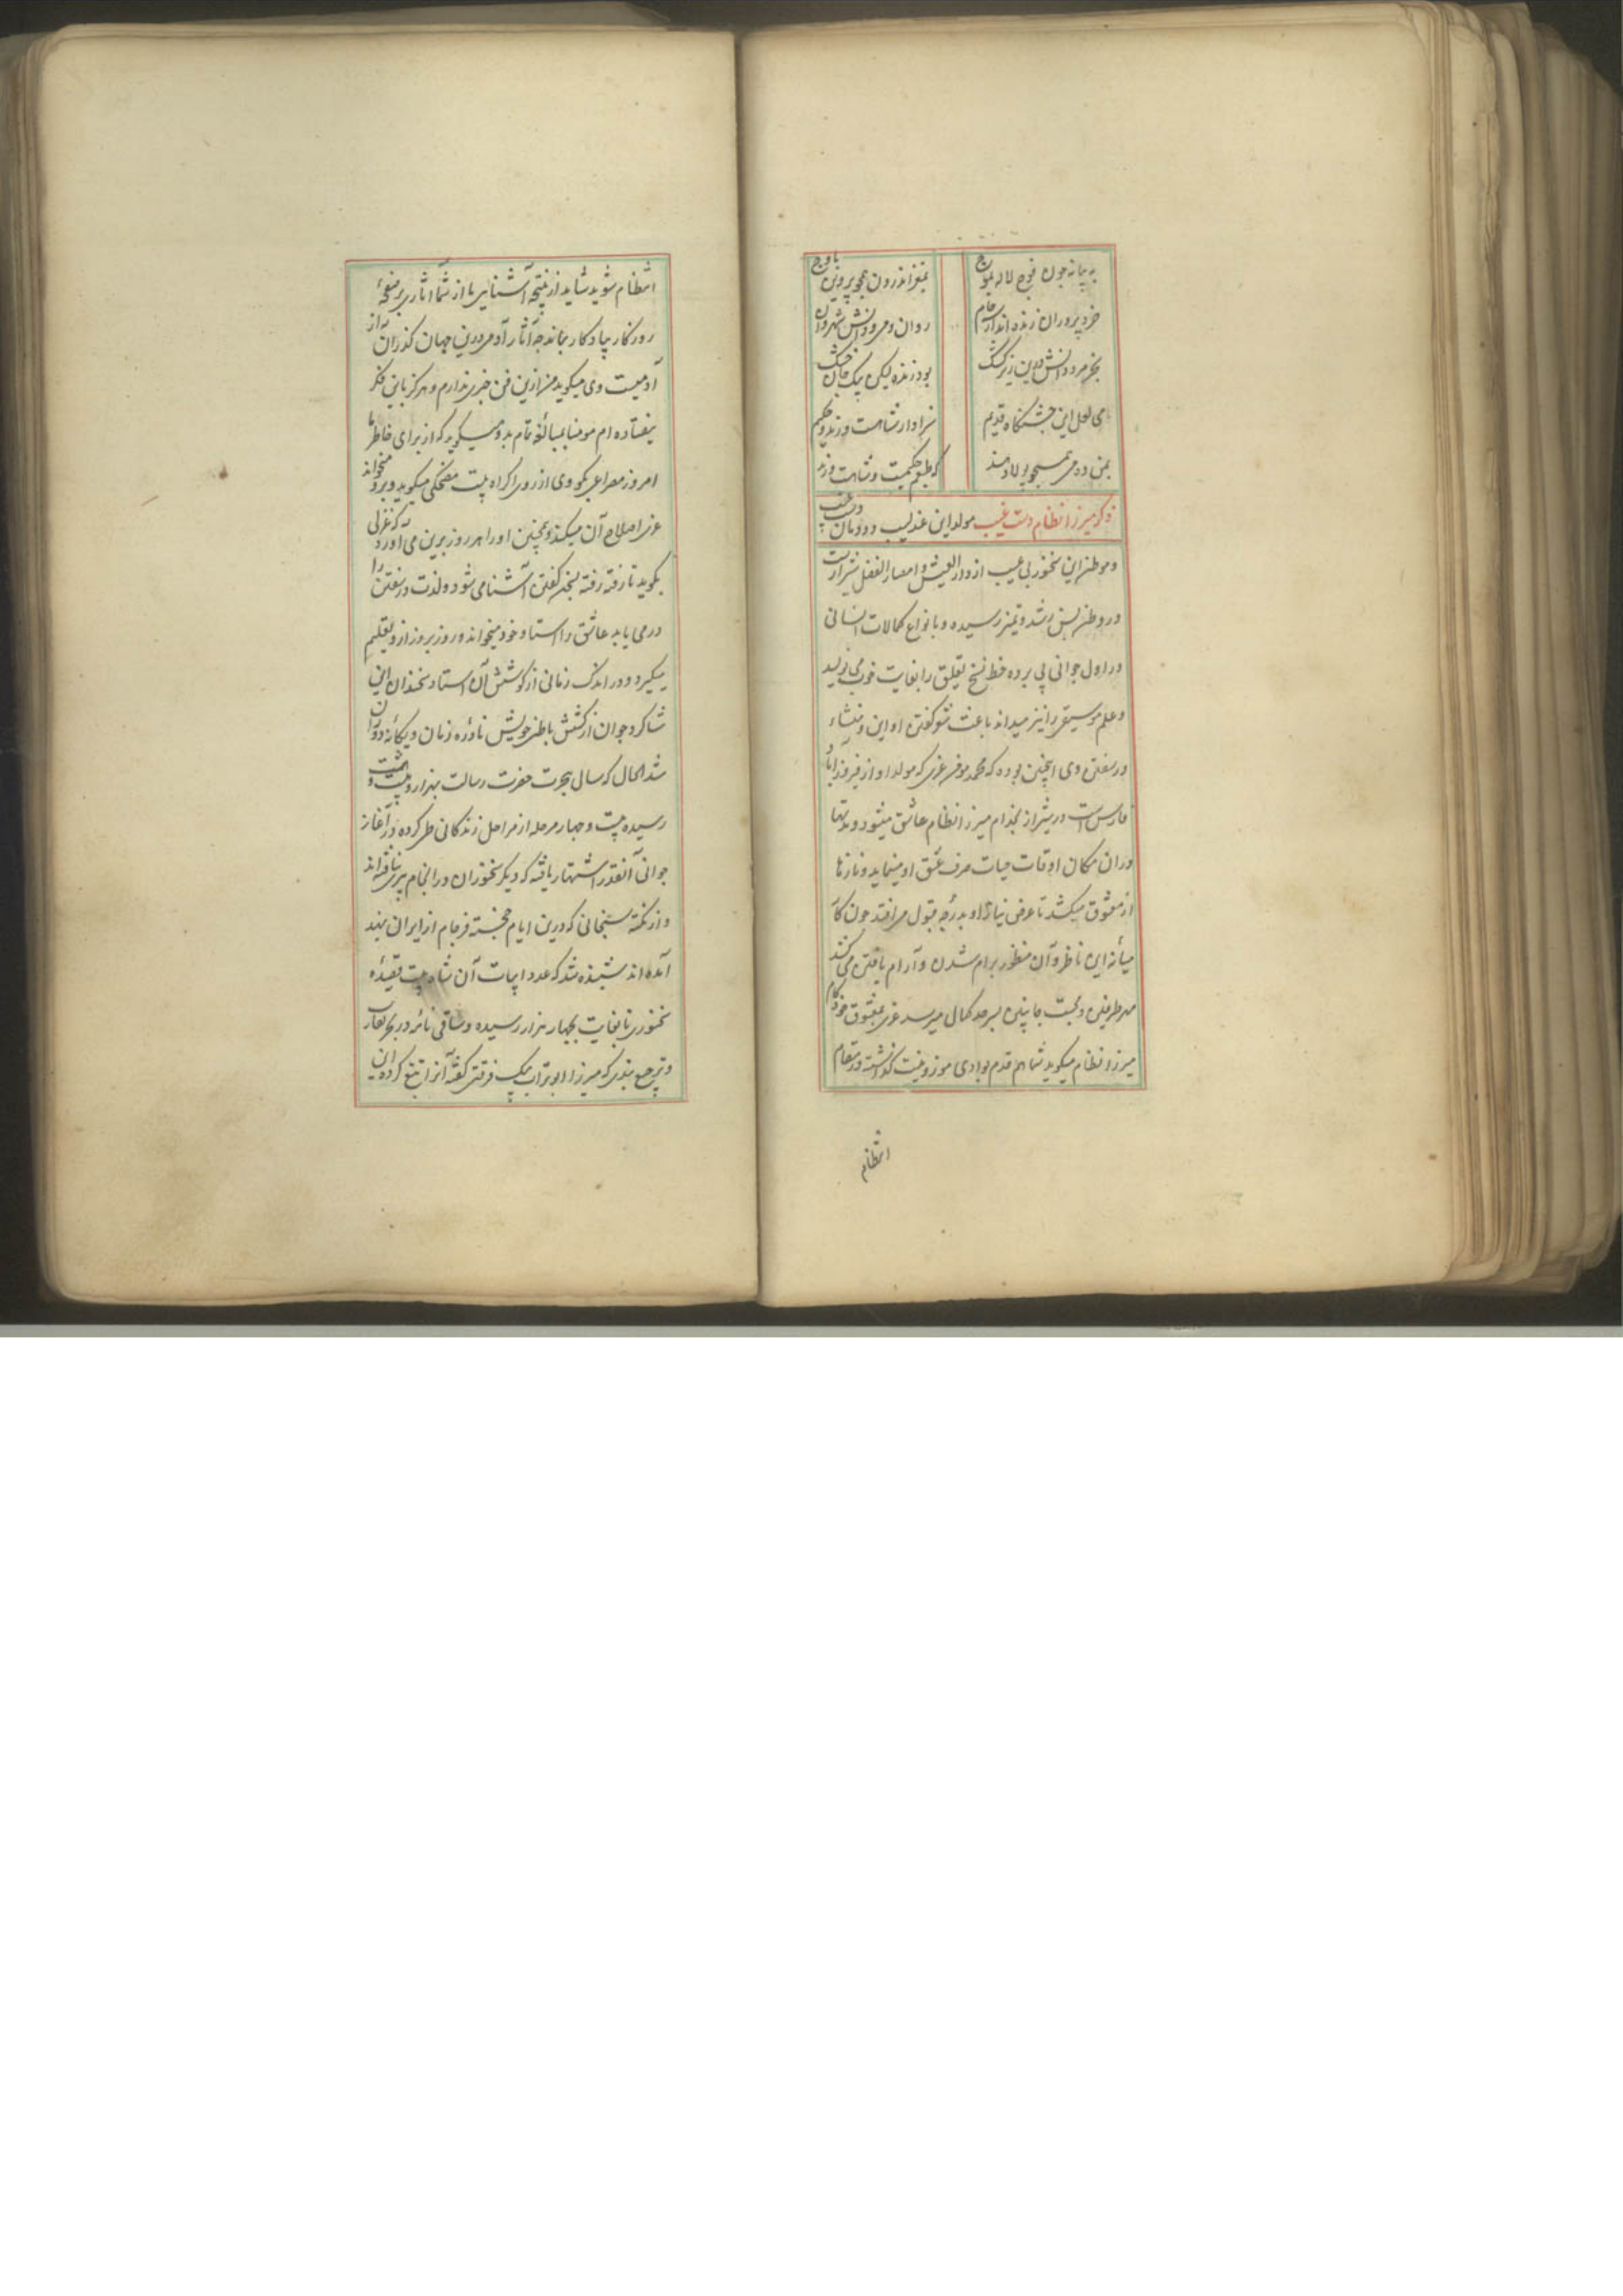 به پیمانه چون فوج لاله بموج
بمغز اندرون همچو پروین باوج
خرد پروران زنده اند از جام
روان و مرو دانش شهروان
بجز مرد دانش درین زیر
بود زنده لیکن یک جان خشک
می لعل این جشنگاه قدیم
سزاوار شاهست و رند و حکیم
بمن ده می همچو پولاد
که طبعم حکیمست و شاهست و رند
ذکر میرزا نظام دست غیب مولد این عندلیب دودمان دست غیب
و موطن این سخنور بی عیب از دار العیش و امصار الفضل شیرازست
در وطن بسن رشد و تمیز رسیده و با نواع کمالات انسانی
در اول جوانی پی برده خط نسخ تعلیق را بغایت خوب می نویسد
و علم موسیقی را نیز میداند باعث شعر گفتن او این و منشاء
در سفتن وی اینچنین بوده که محمد مومن عزی که مولد او از فیروزاباد
فارس است در شیراز بخدام میرزا نظام عاشق میشود و مدتها
دران مکان اوقات حیات صرف عشق او مینماید و نازها
از معشوق میکشد تا عرض نیاز او بدرجه قبول می افتد چون کار
میانه این ناظر و آن منظور برام شدن و آرام یافتن می کشد
مهر طرفین و محبت جانبین بسرحد کمال میرسد عزی بمعشوق خودکام
میرزا نظام میگوید شما هم قدم بوادی موزونیت گذاشته در مقام
انتظام
انتظام شوید شاید از نتیجه آشنایی ما از شما اثاری بر صفحه
روزگار یادگار بماند چه آثار آدمی درین جهان گذران از
آدمیست وی میگوید من ازین فن خبری ندارم و هرگز باین فکر
نیفتاده ام مومنا بمبالغه تمام بدو میگوید که از برای خاطر ما
امروز مصراعی بگو وی از روی اکراه بیت مضحکی میگوید و برو میخواند
عزی اصلاح آن میکند و همچنین او را هر روز برین می آورد که غزلی
بگوید تا رفته رفته بسخن گفتن آشنا می شود و لذت در سفتن را
در می یابد عاشق را استاد خود میخواند و روز بروز ازو تعلیم
میگیرد و در اندک زمانی از کوشش آن استاد سخندان این
شاگرد جوان از کشش باطن خویش نادره زمان و یگانه دوران
شد الحال که سال هجرت حضرت رسالت بهزار و بیست و هشت
رسیده بیست و چهار مرحله از مراحل زندگانی طی کرده در آغاز
جوانی آنقدر اشتهار یافته که دیگر سخنوران در انجام پیری نیافته اند
و از نکته سنجانی که درین ایام خجسته فرجام از ایران بهند
آمده اند شنیده شد که عدد ابیات آن شاه بیت قصیده
سخنوری تا بغایت بچهار هزار رسیده و ساقی نامه در بحر تقارب
و ترجیع بندی که میرزا ابو تراب بیک فرقتی گفته آنرا تتبع کرده این